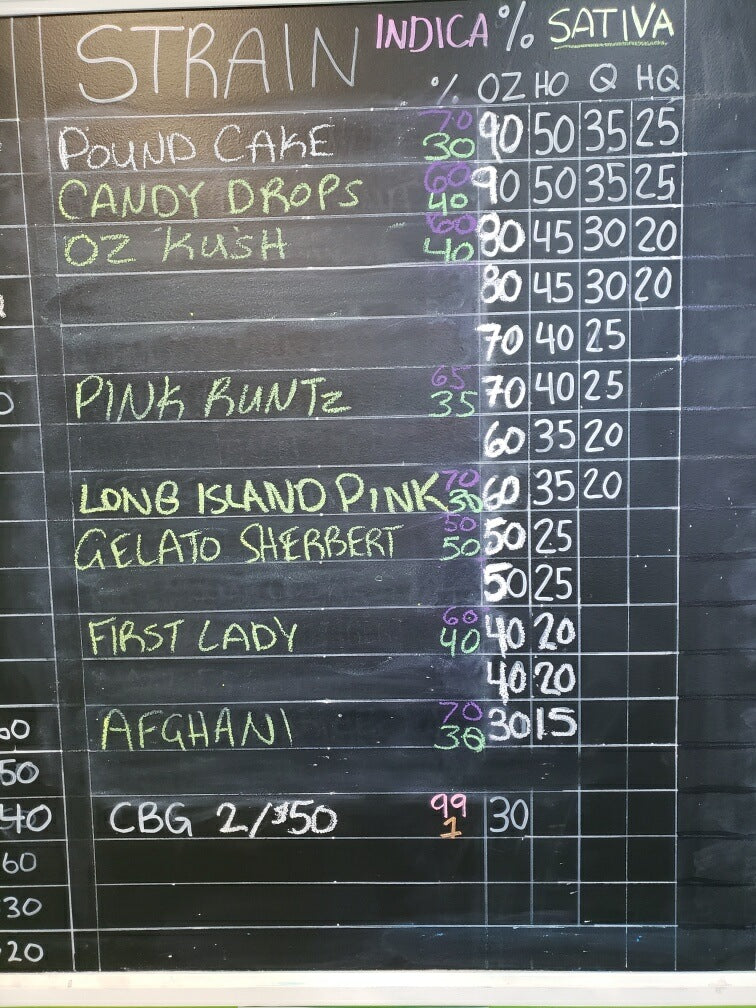 STRAIN INDICA % SATIVA
% OZ HO Q HQ
POUND CAKE 70 30 90 50 35 25
CANDY DROPS 60 40 90 50 35 25
OZ KUSH 60 40 80 45 30 20
80 45 30 20
70 40 25
PINK RUNTZ 65 35 70 40 25
60 35 20
LONG ISLAND PINK 70 30 60 35 20
GELATO SHERBERT 50 50 50 25
50 25
FIRST LADY 60 40 40 20
40 20
AFGHANI 70 30 30 15
50
CBG 2/$50 99 1 30
40
60
30
20